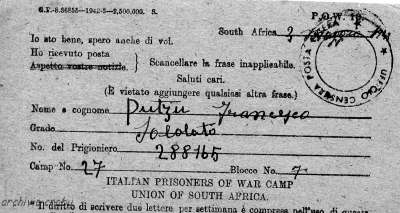 G.P.-S.36855—1942-3—2,500,000. S.
P.O.W. 10.
Io sto bene, spero anche di voi.
South Africa, 3
Ho ricevuto posta
Aspetto vostre notizie.
Scancellare la frase inapplicabile.
Saluti cari.
(È vietato aggiungere qualsiasi altra frase.)
UFFICIO CENSURA POSTA
Nome e cognome Putzu Francesco
Grado Soldato
No. del Prigioniero 288165
Camp No. 27 Blocco No. 7
ITALIAN PRISONERS OF WAR CAMP
UNION OF SOUTH AFRICA.
Il diritto di scrivere due lettere per settimana è compreso nell'uso di queste